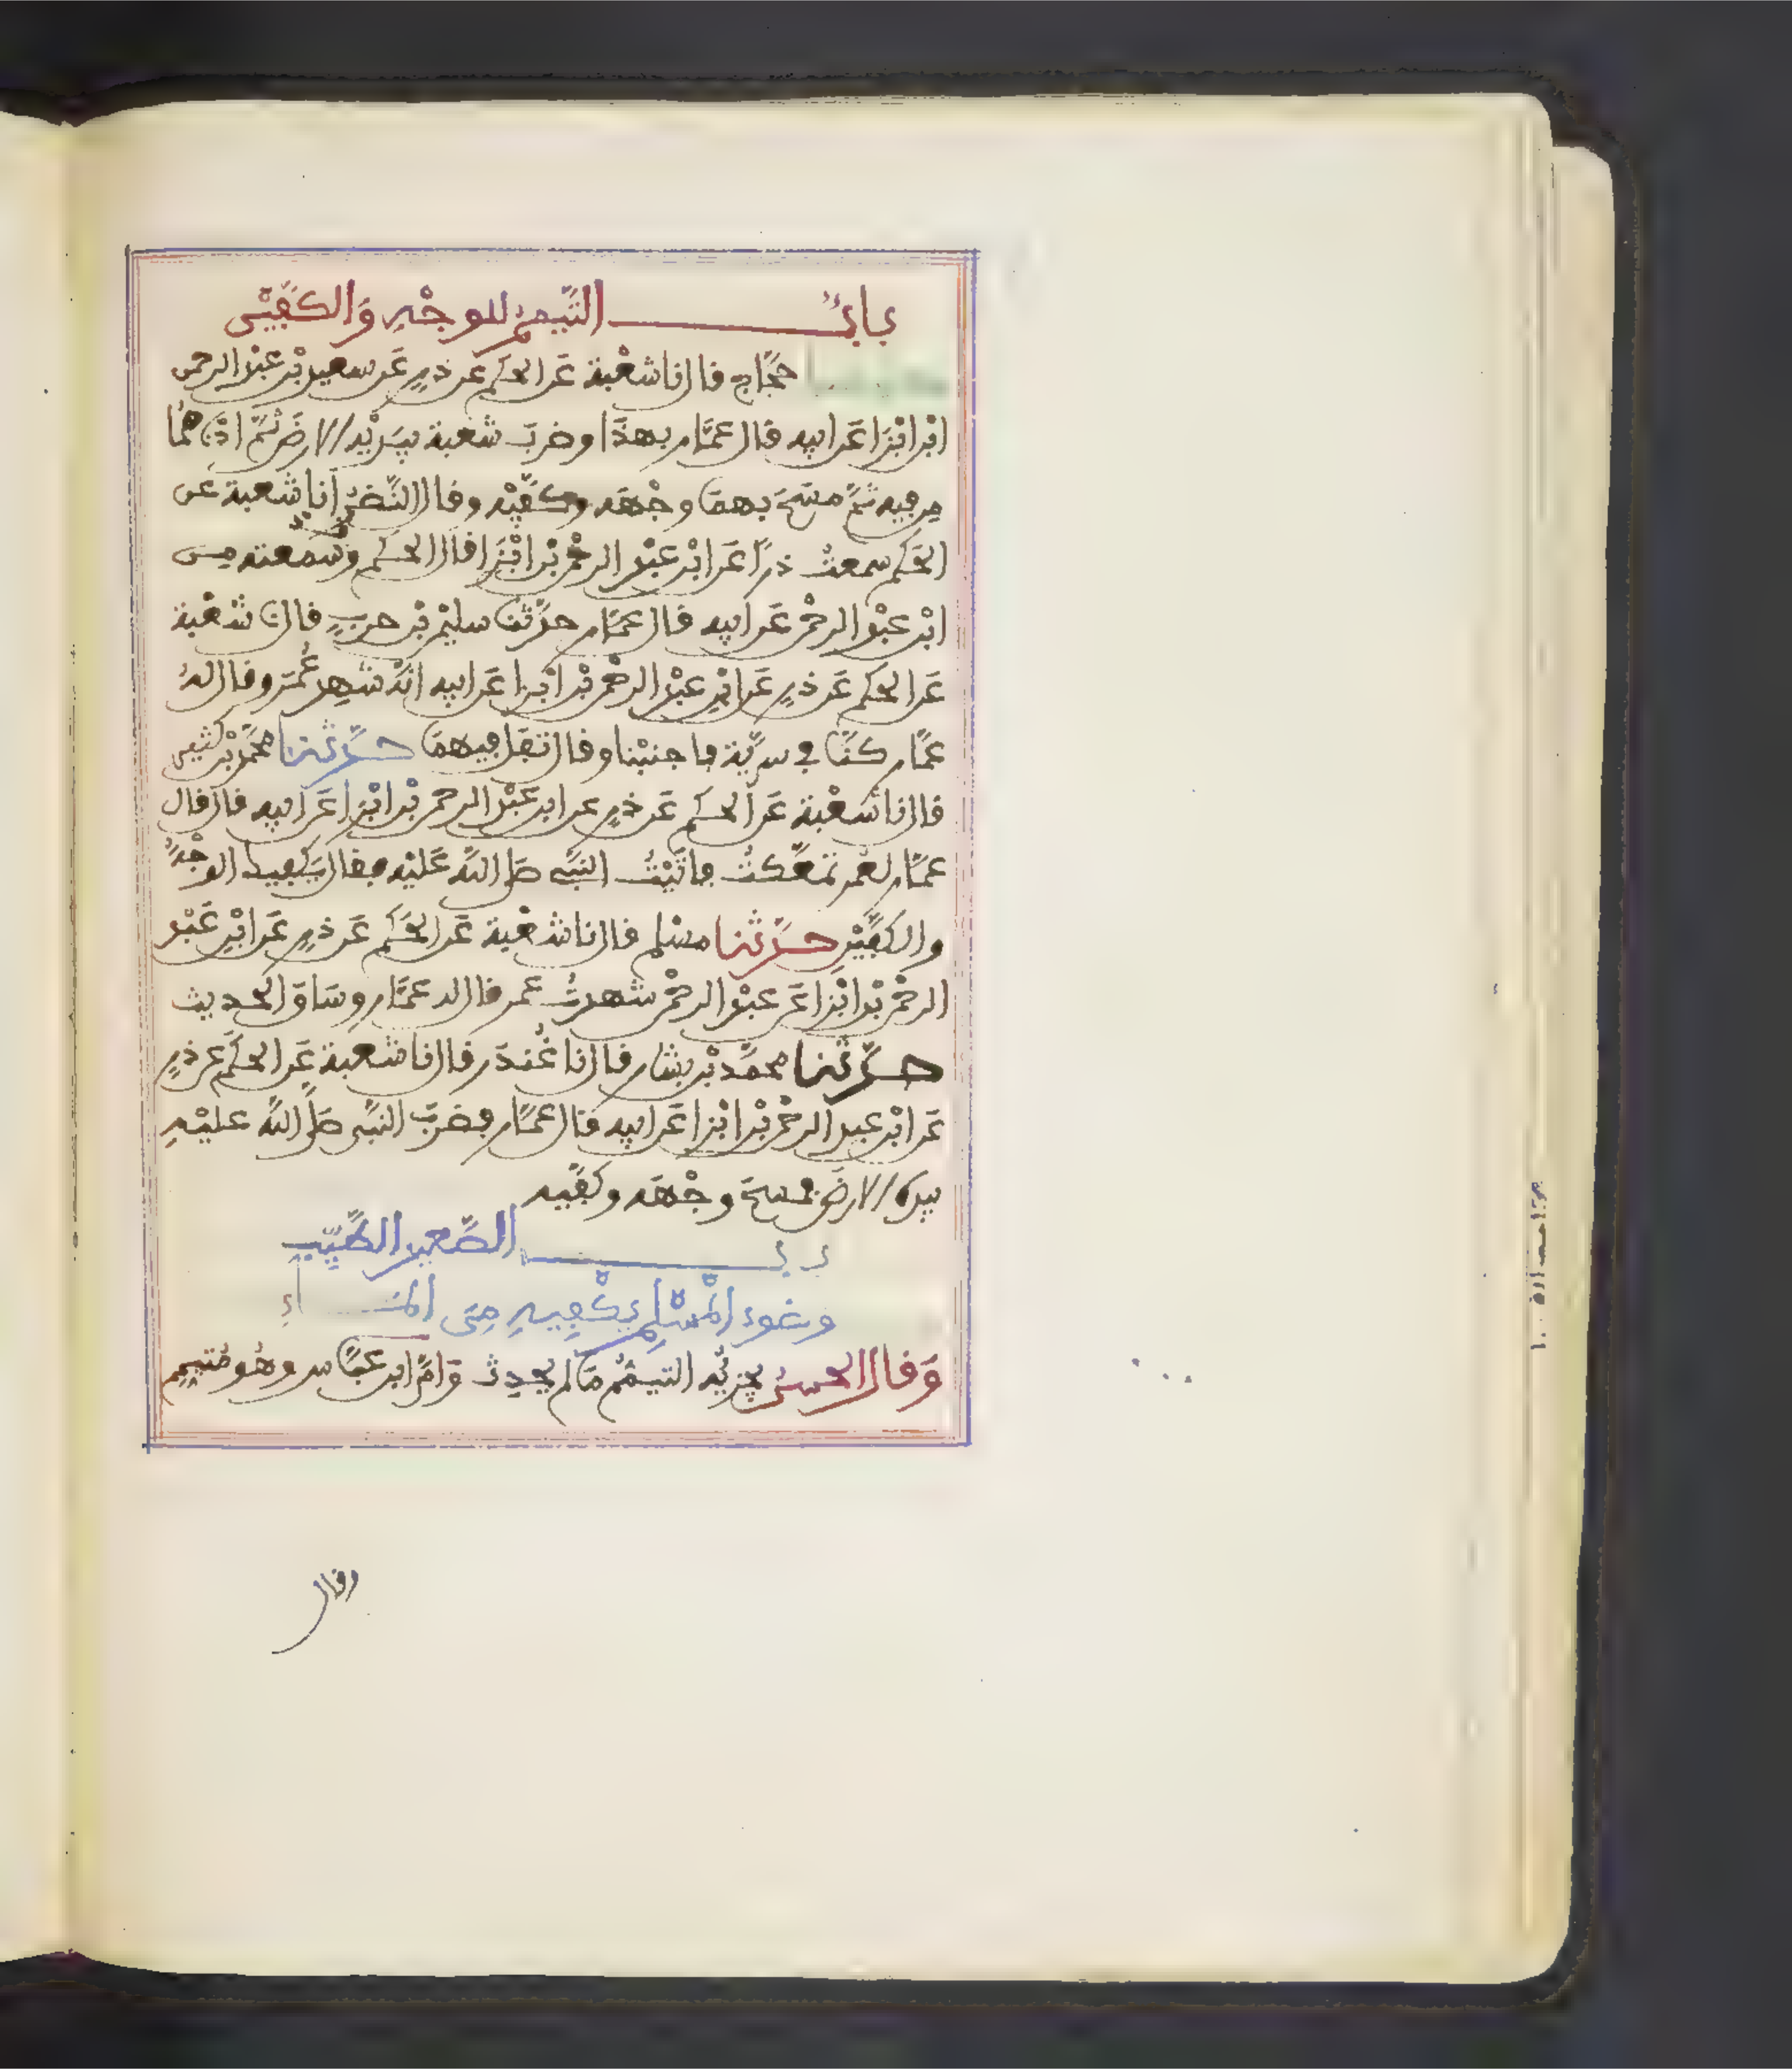 باب التيمم للوجه والكفين
حجاج قال انا شعبة عن الحكم عن ذر عن سعيد بن عبد الرحمن
ابن ابزا عن ابيه قال عمار بهذا وضرب شعبة بيديه الارض ثم ادناهما
من فيه ثم مسح بهما وجهه وكفيه وقال النضر انا شعبة عن
الحكم سمعت ذرا عن ابن عبد الرحمن بن ابزا قال الحكم وسمعته من
ابن عبد الرحمن عن ابيه قال عمار حدثنا سليمن بن حرب قال نا شعبة
عن الحكم عن ذر عن ابن عبد الرحمن بن ابزا عن ابيه انه شهد عمر وقال له
عمار كنا في سرية فاجنبنا وقال تفل فيهما حدثنا محمد بن كثير
قال انا شعبة عن الحكم عن ذر عن ابن عبد الرحمن بن ابزا عن ابيه قال قال
عمار لعمر تمعكت فاتيت النبي صلى الله عليه فقال يكفيك الوجه
والكفين حدثنا مسلم قال نا شعبة عن الحكم عن ذر عن ابن عبد
الرحمن بن ابزا عن عبد الرحمن شهدت عمر قال له عمار وساق الحديث
حدثنا محمد بن بشار قال نا غندر قال نا شعبة عن الحكم عن ذر
عن ابن عبد الرحمن بن ابزا عن ابيه قال عمار فضرب النبي صلى الله عليه
بيده الارض فمسح وجهه وكفيه
باب الصعيد الطيب
وضوء المسلم يكفيه من الماء
وقال الحسن يجزئه التيمم ما لم يحدث وام ابن عباس وهو متيمم
وقال